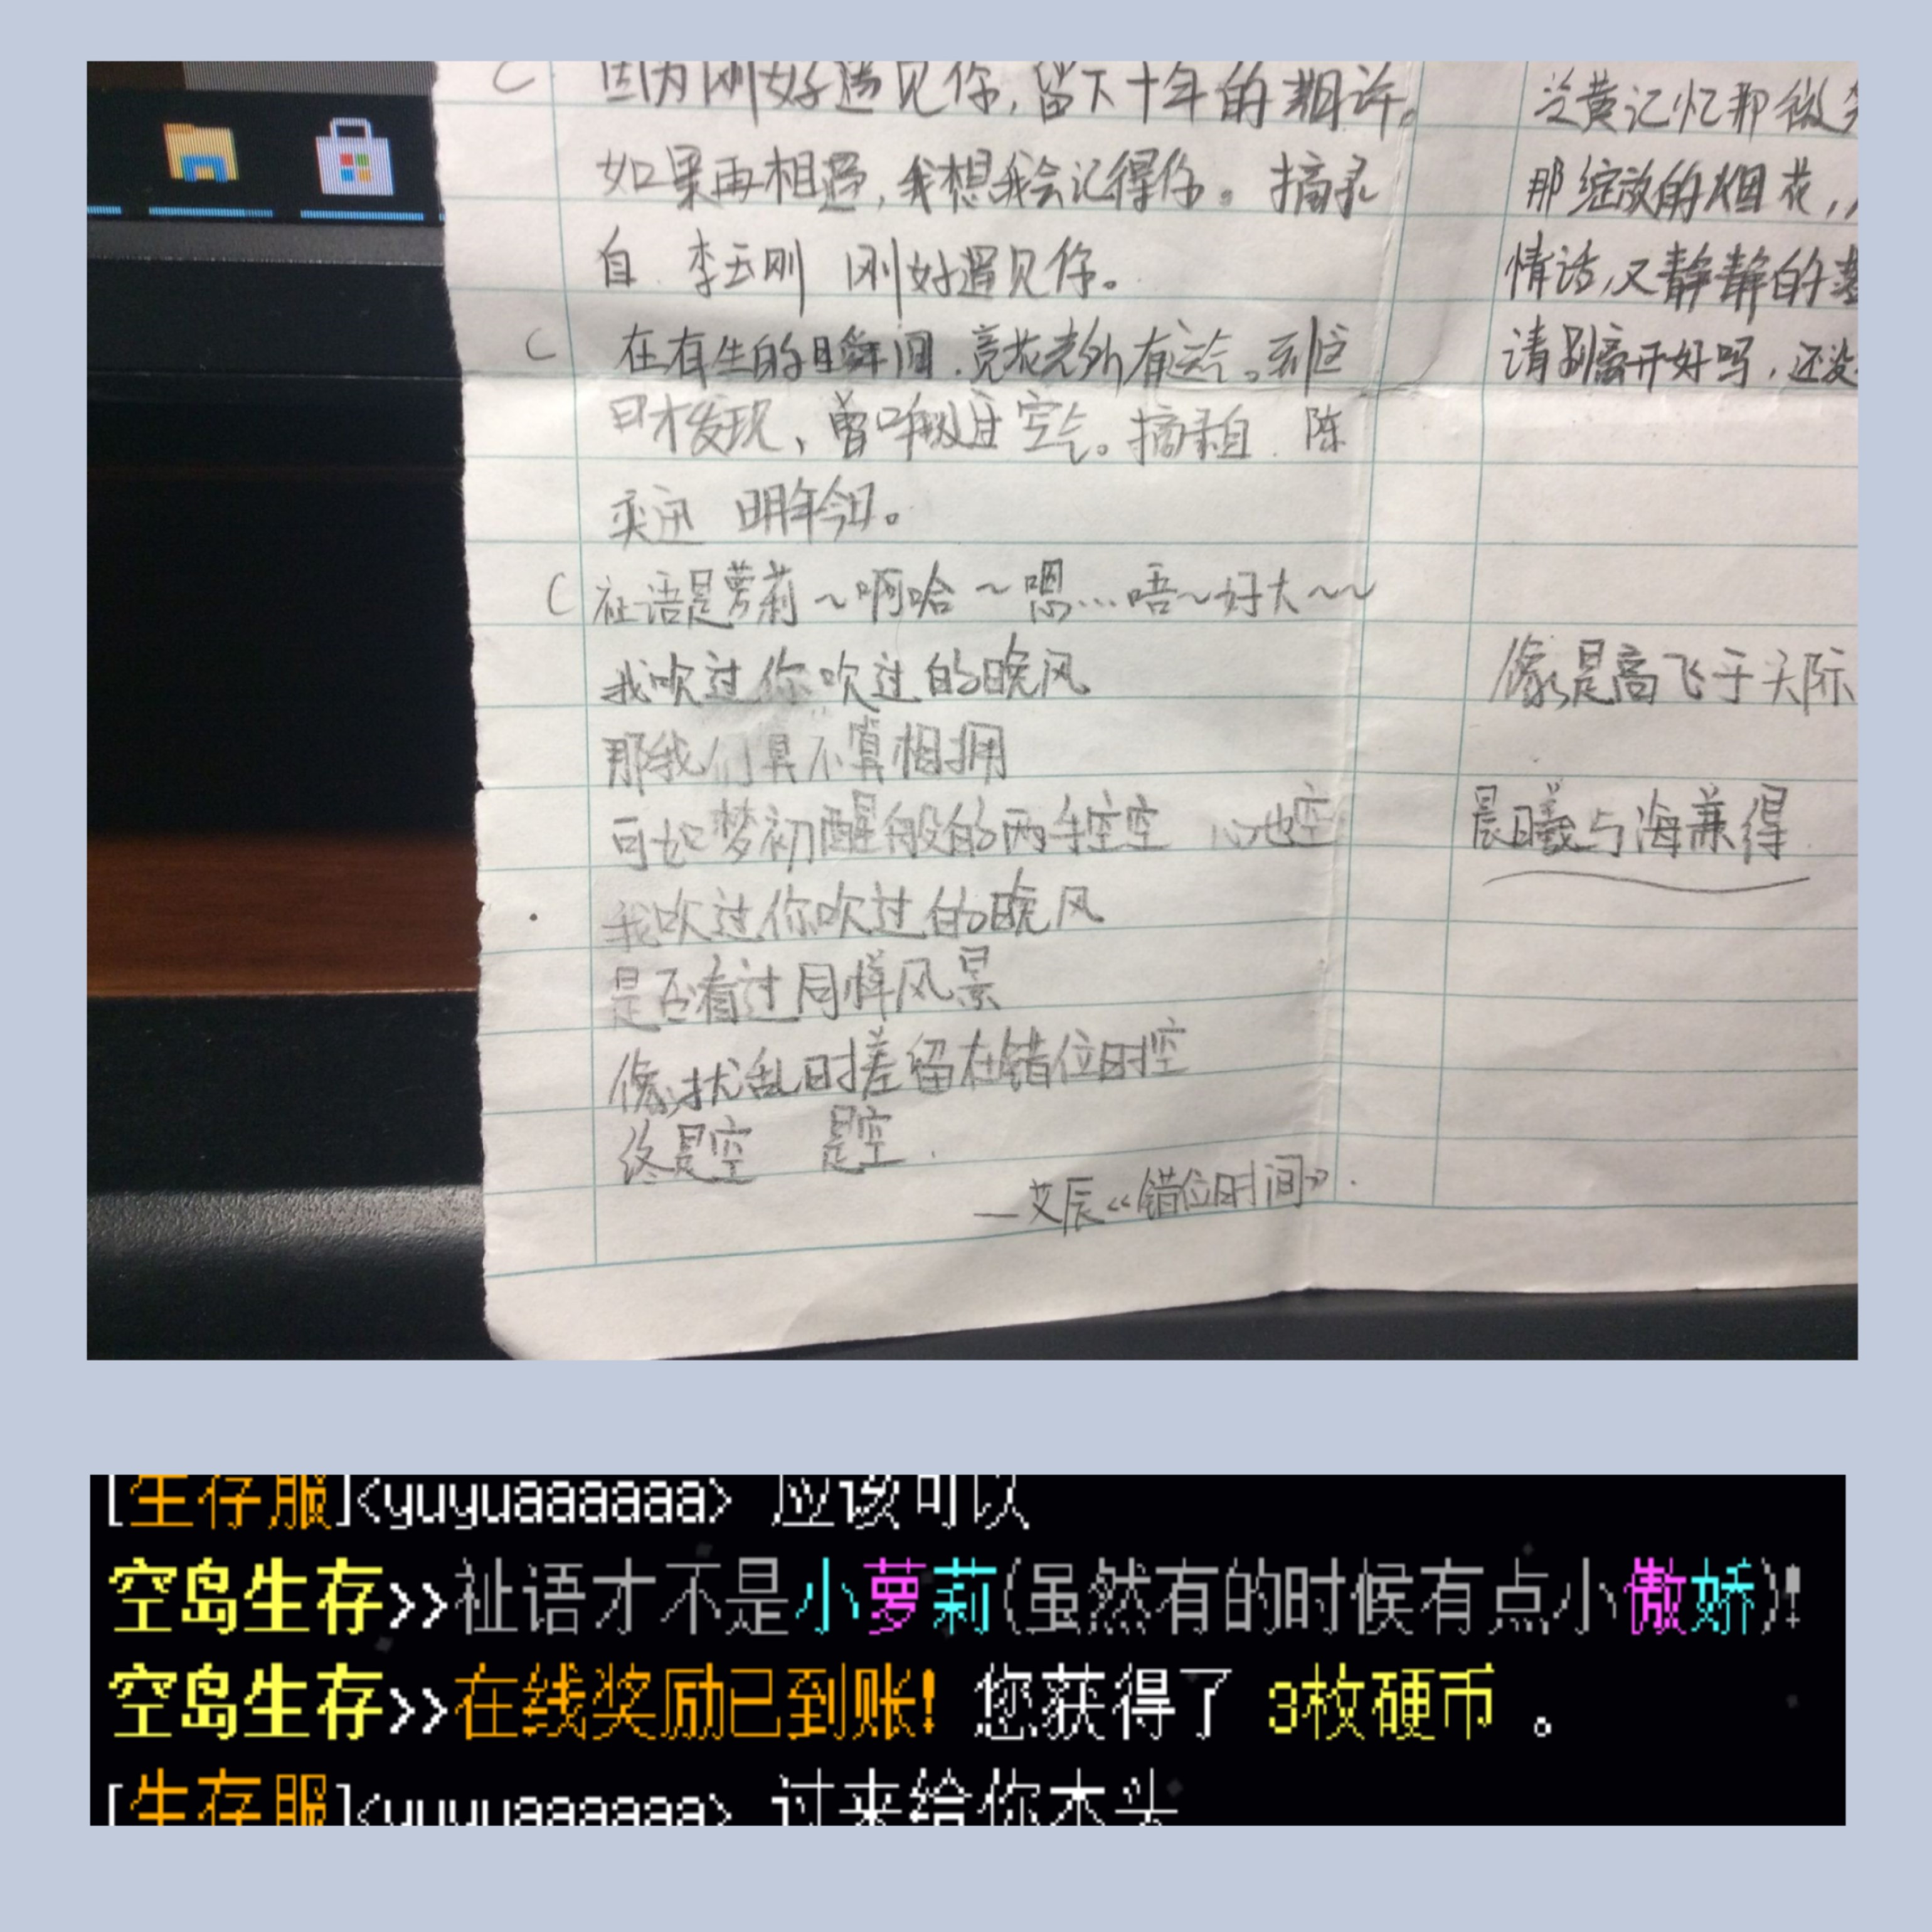 因为刚好遇见你，留下十年的期许。
如果再相遇，我想我会记得你。摘录
自 李玉刚 刚好遇见你。
在有生的瞬间，竟花光所有运气。到这
日才发现，曾呼吸过空气。摘录自 陈
奕迅 明年今日。
祉语是萝莉～啊哈～嗯…唔～好大～～
我吹过你吹过的晚风
那我们算不算相拥
可如梦初醒般的两手空空 心也空
我吹过你吹过的晚风
是否看过同样风景
像扰乱时差留在错位时空
终是空 是空.
—艾辰《错位时间》.
泛黄记忆那微
那绽放的烟花，
情话，又静静的
请别离开好吗，还没
像是高飞于天际
晨曦与海兼得
[生存服]<yuyuaaaaaa> 应该可以
空岛生存>>祉语才不是小萝莉(虽然有的时候有点小傲娇)!
空岛生存>>在线奖励已到账! 您获得了 3枚硬币 。
[生存服]<yuyuaaaaaa> 过来给你木头